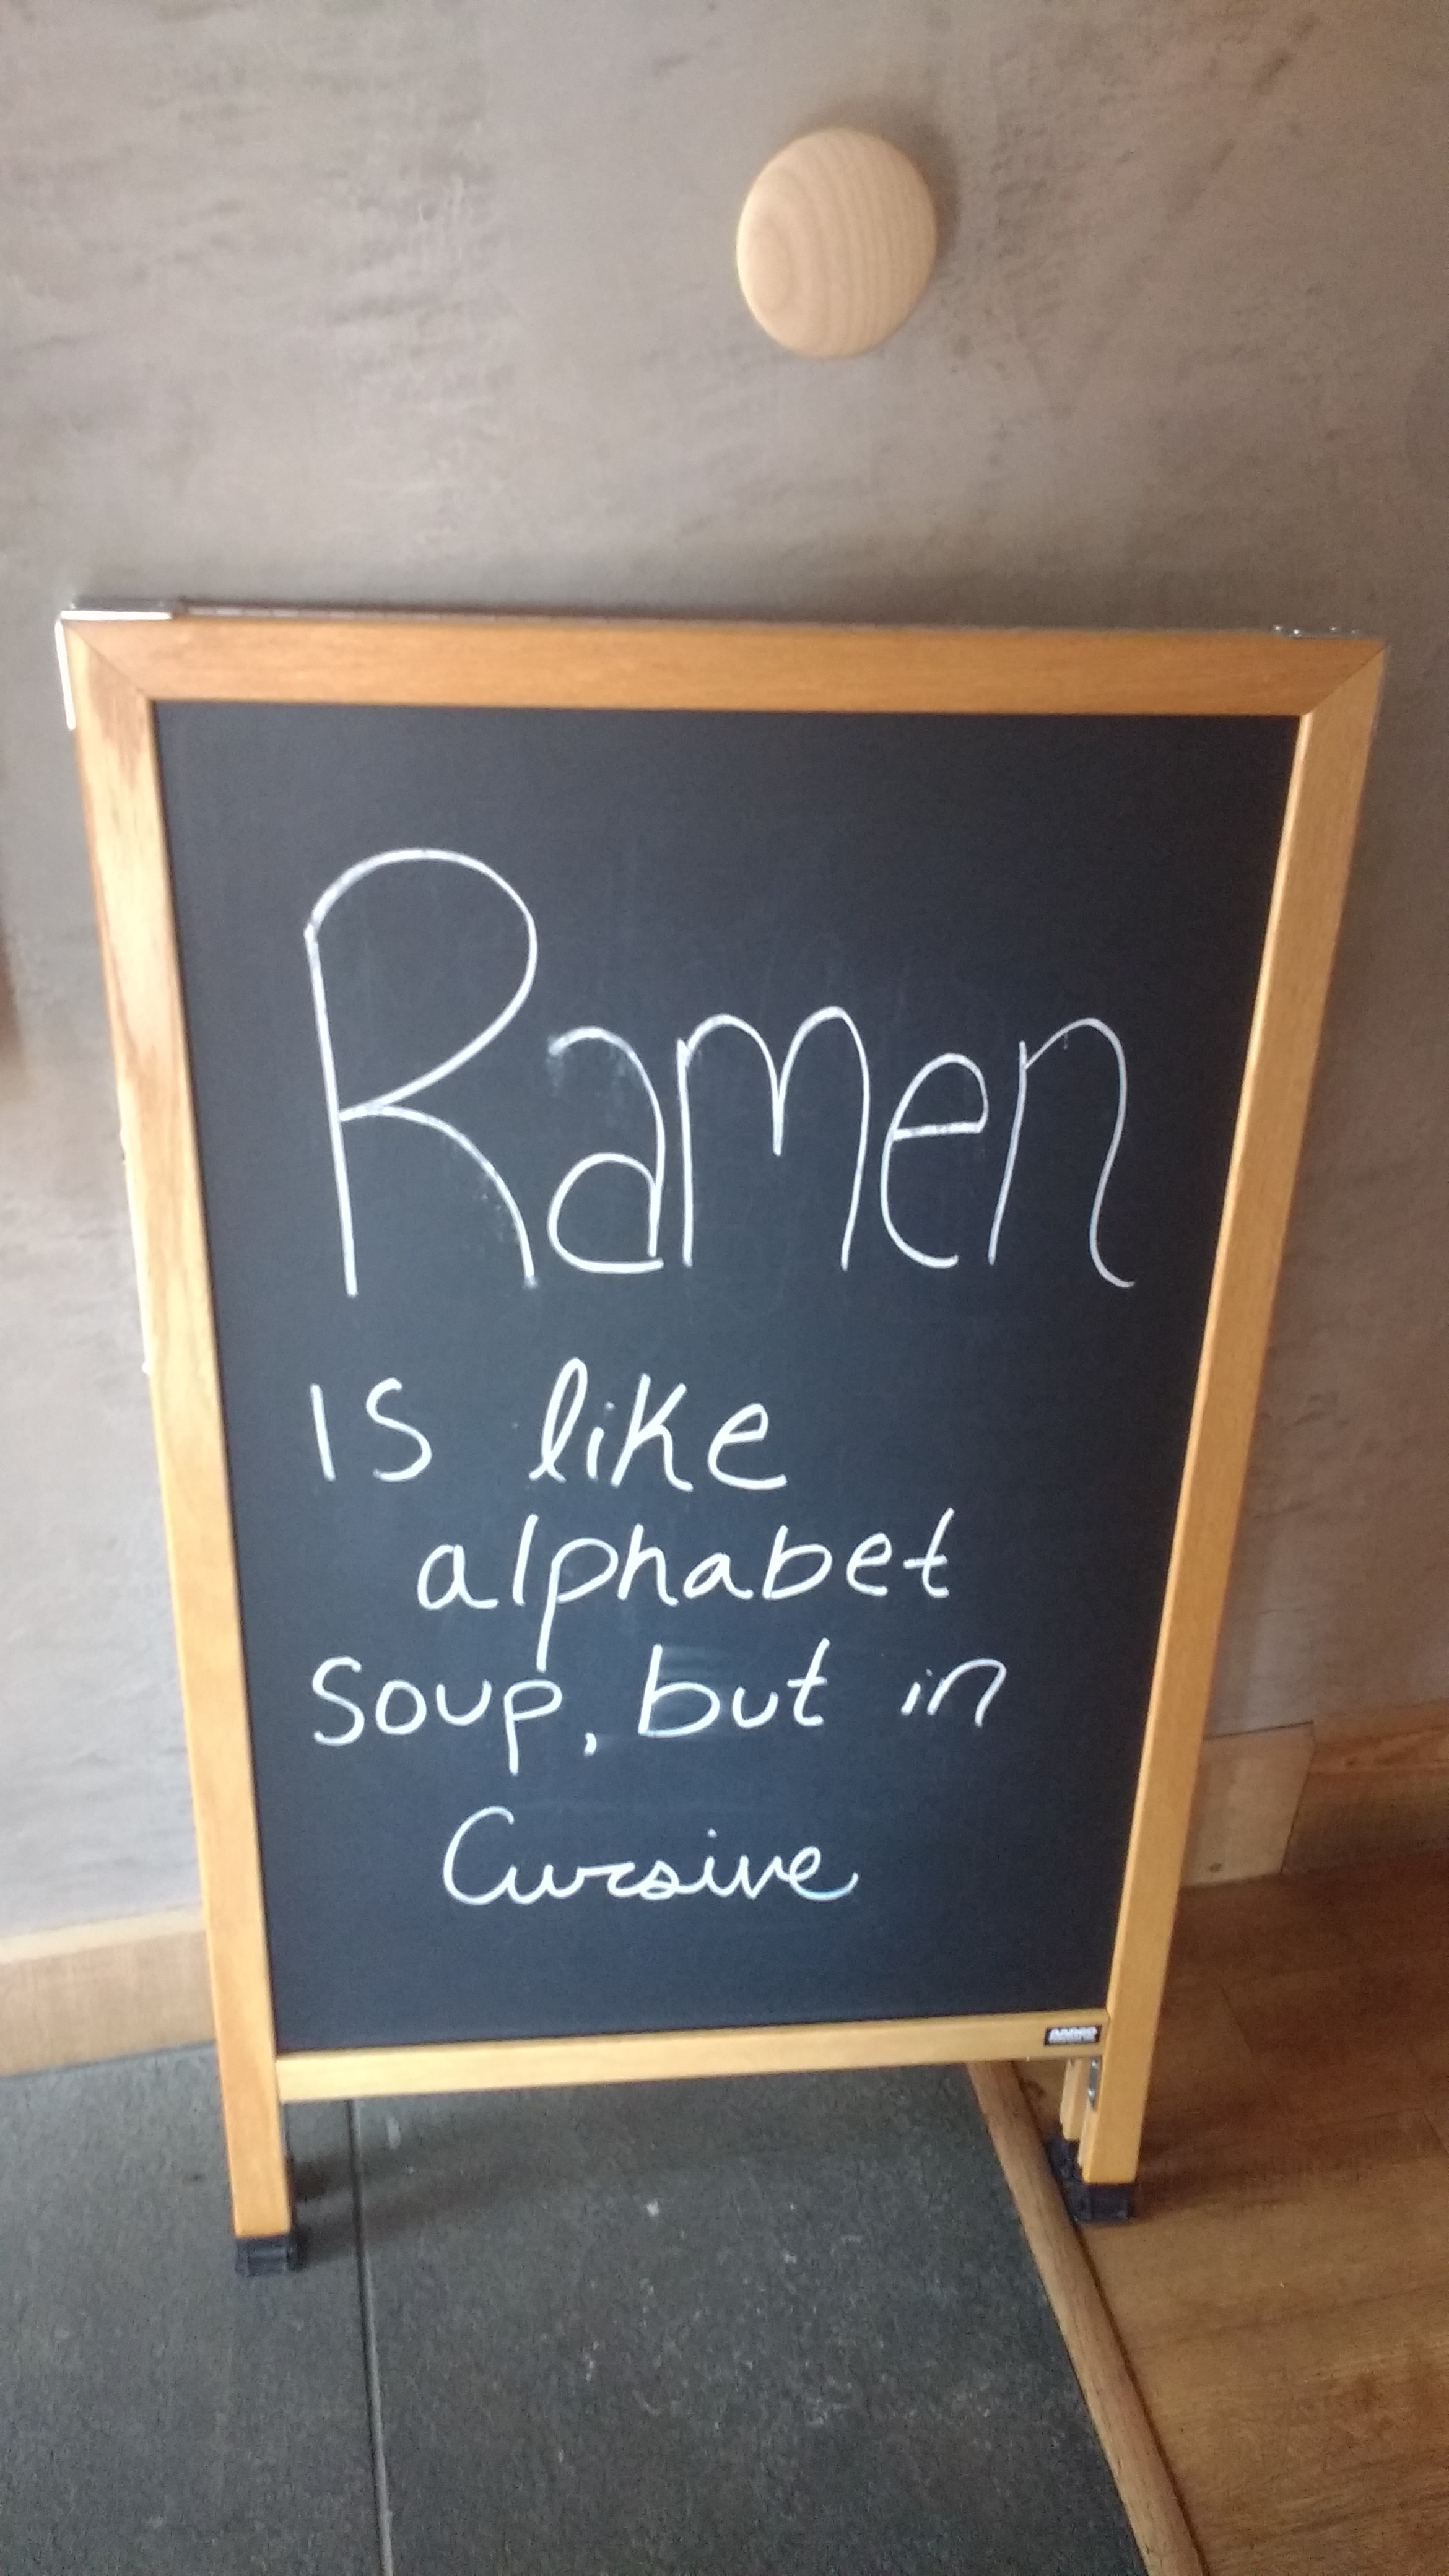 Ramen
is like
alphabet
soup, but in
Cursive
AARCO